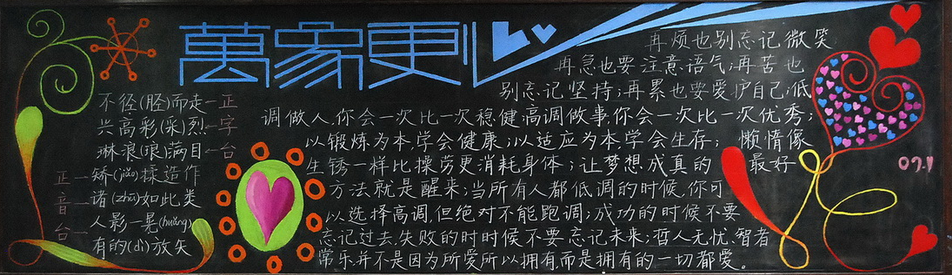 萬象更
再烦也别忘记微笑
再急也要注意语气;再苦也
别忘记坚持;再累也要爱护自己;低
调做人,你会一次比一次稳健高调做事,你会一次比一次优秀;
以锻炼为本,学会健康;以适应为本学会生存; 懒惰像
生锈一样比操劳更消耗身体;让梦想成真的 最好
方法就是醒来;当所有人都低调的时候,你可
以选择高调,但绝对不能跑调;成功的时候不要
忘记过去,失败的时时候不要忘记未来;哲人无忧,智者
常乐,并不是因为所爱所以拥有,而是拥有的一切都爱。
不径(胫)而走
兴高彩(采)烈
琳浪(琅)满目
正字台
矫(jiǎo)揉造作
诸(zhū)如此类
人影一晃(huǎng)
有的(dì)放矢
正音台
09.1